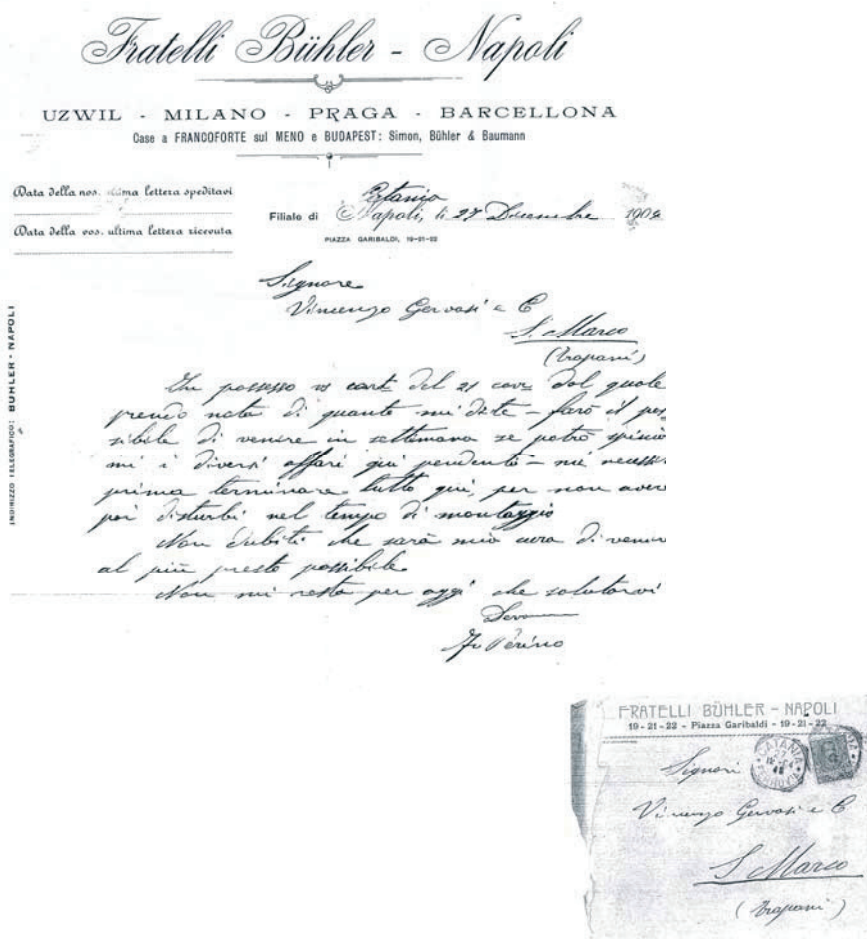 Fratelli Bühler - Napoli
UZWIL - MILANO - PRAGA - BARCELLONA
Case a FRANCOFORTE sul MENO e BUDAPEST: Simon, Bühler & Baumann
Data della nos. ultima lettera speditavi
Data della vos. ultima lettera ricevuta
Catania
Filiale di Napoli, li 27 Dicembre 1904
PIAZZA GARIBALDI, 19-21-22
INDIRIZZO TELEGRAFICO: BUHLER - NAPOLI
Signore
Vincenzo Gervasi e C
S. Marco
(Trapani)
In possesso vs cart. del 21 corr. dal quale
prendo nota di quanto mi dite - farò il pos
sibile di venire in settimana se potrò
mi i diversi affari qui pendenti - mi necess
prima terminare tutto qui, per non avere
poi disturbi nel tempo di montaggio
Non dubiti che sarà mia cura di venir
al più presto possibile.
Non mi resta per oggi che salutarvi
Perino
FRATELLI BÜHLER - NAPOLI
19 - 21 - 22 - Piazza Garibaldi - 19 - 21 - 22
CATANIA
27
FERROVIA
Signori
Vincenzo Gervasi e C
S. Marco
(Trapani)